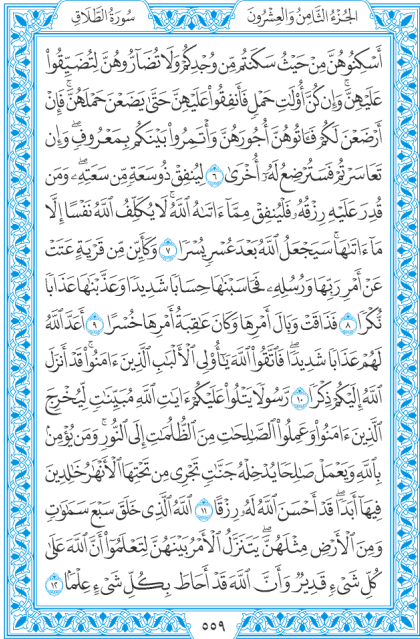 الجُزْءُ الثَّامِنُ وَالعِشْرُونَ سُورَةُ الطَّلَاقِ
أَسْكِنُوهُنَّ مِنْ حَيْثُ سَكَنتُم مِّن وُجْدِكُمْ وَلَا تُضَآرُّوهُنَّ لِتُضَيِّقُوا۟
عَلَيْهِنَّ ۚ وَإِن كُنَّ أُو۟لَـٰتِ حَمْلٍ فَأَنفِقُوا۟ عَلَيْهِنَّ حَتَّىٰ يَضَعْنَ حَمْلَهُنَّ ۚ فَإِنْ
أَرْضَعْنَ لَكُمْ فَـَٔاتُوهُنَّ أُجُورَهُنَّ ۖ وَأْتَمِرُوا۟ بَيْنَكُم بِمَعْرُوفٍ ۖ وَإِن
تَعَاسَرْتُمْ فَسَتُرْضِعُ لَهُۥٓ أُخْرَىٰ ٦ لِيُنفِقْ ذُو سَعَةٍ مِّن سَعَتِهِۦ ۖ وَمَن
قُدِرَ عَلَيْهِ رِزْقُهُۥ فَلْيُنفِقْ مِمَّآ ءَاتَىٰهُ ٱللَّهُ ۚ لَا يُكَلِّفُ ٱللَّهُ نَفْسًا إِلَّا
مَآ ءَاتَىٰهَا ۚ سَيَجْعَلُ ٱللَّهُ بَعْدَ عُسْرٍ يُسْرًا ٧ وَكَأَيِّن مِّن قَرْيَةٍ عَتَتْ
عَنْ أَمْرِ رَبِّهَا وَرُسُلِهِۦ فَحَاسَبْنَـٰهَا حِسَابًا شَدِيدًا وَعَذَّبْنَـٰهَا عَذَابًا
نُّكْرًا ٨ فَذَاقَتْ وَبَالَ أَمْرِهَا وَكَانَ عَـٰقِبَةُ أَمْرِهَا خُسْرًا ٩ أَعَدَّ ٱللَّهُ
لَهُمْ عَذَابًا شَدِيدًا ۖ فَٱتَّقُوا۟ ٱللَّهَ يَـٰٓأُو۟لِى ٱلْأَلْبَـٰبِ ٱلَّذِينَ ءَامَنُوا۟ ۚ قَدْ أَنزَلَ
ٱللَّهُ إِلَيْكُمْ ذِكْرًا ١٠ رَّسُولًا يَتْلُوا۟ عَلَيْكُمْ ءَايَـٰتِ ٱللَّهِ مُبَيِّنَـٰتٍ لِّيُخْرِجَ
ٱلَّذِينَ ءَامَنُوا۟ وَعَمِلُوا۟ ٱلصَّـٰلِحَـٰتِ مِنَ ٱلظُّلُمَـٰتِ إِلَى ٱلنُّورِ ۚ وَمَن يُؤْمِنۢ
بِٱللَّهِ وَيَعْمَلْ صَـٰلِحًا يُدْخِلْهُ جَنَّـٰتٍ تَجْرِى مِن تَحْتِهَا ٱلْأَنْهَـٰرُ خَـٰلِدِينَ
فِيهَآ أَبَدًا ۖ قَدْ أَحْسَنَ ٱللَّهُ لَهُۥ رِزْقًا ١١ ٱللَّهُ ٱلَّذِى خَلَقَ سَبْعَ سَمَـٰوَٰتٍ
وَمِنَ ٱلْأَرْضِ مِثْلَهُنَّ ۖ يَتَنَزَّلُ ٱلْأَمْرُ بَيْنَهُنَّ لِتَعْلَمُوٓا۟ أَنَّ ٱللَّهَ عَلَىٰ
كُلِّ شَىْءٍ قَدِيرٌ وَأَنَّ ٱللَّهَ قَدْ أَحَاطَ بِكُلِّ شَىْءٍ عِلْمًۢا ١٢
٥٥٩